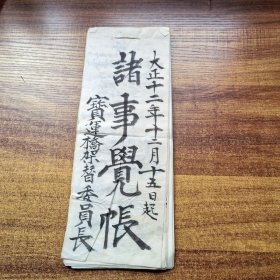 大正十二年十二月十五日起
諸事覺帳
寳蓮橋架替委員長